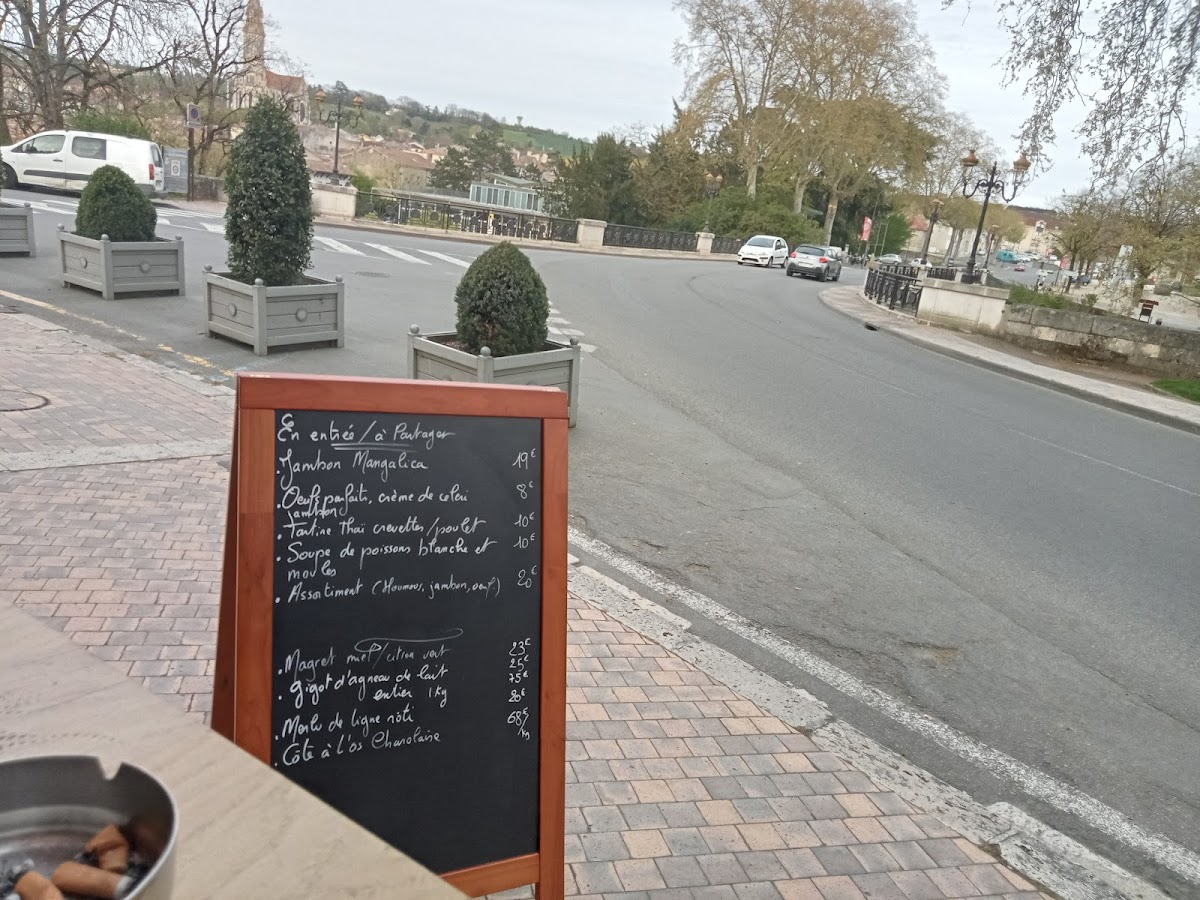 En entrée / à Partager
. Jambon Mangalica 19€
. Oeufs parfaits, crème de celeri 8€
jambon
. Tartine Thaï crevettes/poulet 10€
. Soupe de poissons blanche et 10€
moules
. Assortiment (Houmous, jambon, oeuf) 20€
. Magret miel/citron vert 23€
. Gigot d'agneau de lait 25€
entier 1kg 75€
. Merlu de ligne rôti 20€
. Côte à l'os Charolaise 68€/kg